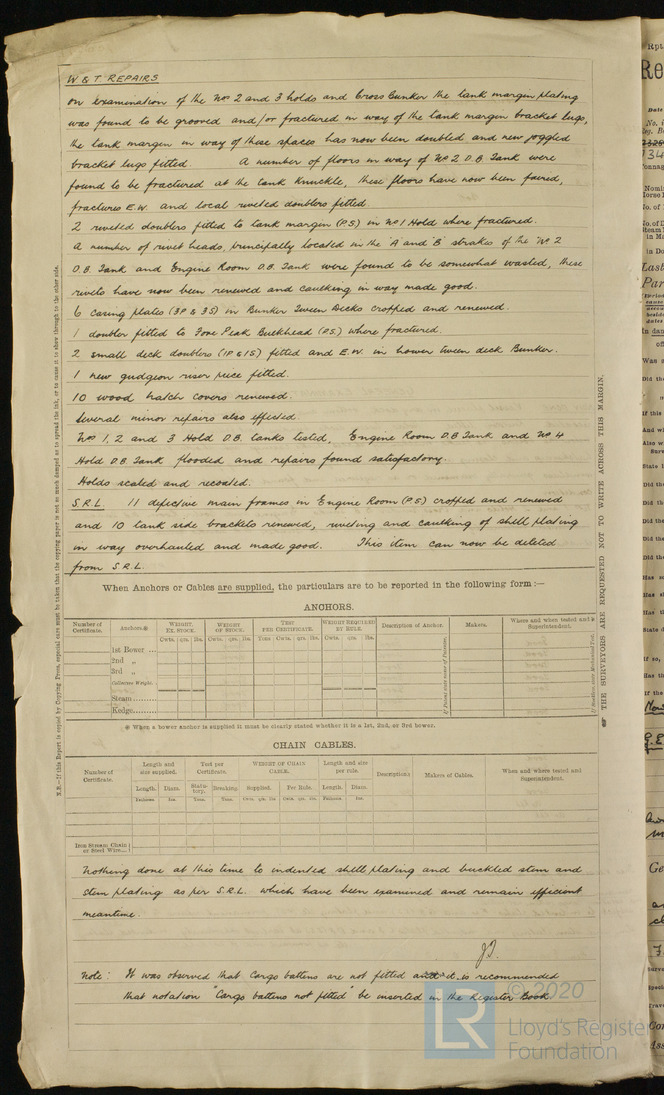 W & T REPAIRS
On examination of the Nos 2 and 3 holds and Cross Bunker the tank margin plating
was found to be grooved and/or fractured in way of the tank margin bracket lugs,
the tank margin in way of these spaces has now been doubled and new joggled
bracket lugs fitted. A number of floors in way of No 2 D.B. Tank were
found to be fractured at the tank knuckle, these floors have now been faired,
fractures E.W. and local riveted doublers fitted.
2 riveted doublers fitted to tank margin (P.S) in No 1 Hold where fractured.
A number of rivet heads, principally located in the 'A' and 'B' strakes of the No 2
D.B. Tank and Engine Room D.B. Tank were found to be somewhat wasted, these
rivets have now been renewed and caulking in way made good.
6 casing plates (3P & 3S) in Bunker Tween Decks cropped and renewed.
1 doubler fitted to Fore Peak Bulkhead (P.S.) where fractured.
2 small deck doublers (1P & 1S) fitted and E.W. in lower tween deck Bunker.
1 new gudgeon riser piece fitted.
10 wood hatch covers renewed.
Several minor repairs also effected
Nos 1, 2 and 3 Hold D.B. tanks tested, Engine Room D.B Tank and No 4
Hold D.B. Tank flooded and repairs found satisfactory.
Holds scaled and recoated.
S.R.L. 11 defective main frames in Engine Room (P.S) cropped and renewed
and 10 tank side brackets renewed, riveting and caulking of shell plating
in way overhauled and made good. This item can now be deleted
from S.R.L.
When Anchors or Cables are supplied, the particulars are to be reported in the following form :—
ANCHORS.
Number of Certificate. Anchors.※ WEIGHT, EX. STOCK. WEIGHT OF STOCK. TEST PER CERTIFICATE. WEIGHT REQUIRED BY RULE. Description of Anchor. Makers. Where and when tested and Superintendent.
Cwts. qrs. lbs. Cwts. qrs. lbs. Tons Cwts. qrs. lbs. Cwts. qrs. lbs.
1st Bower ...
2nd „
3rd „
Collective Weight.
Stream
Kedge
※ When a bower anchor is supplied it must be clearly stated whether it is a 1st, 2nd, or 3rd bower.
CHAIN CABLES.
Number of Certificate. Length and size supplied. Test per Certificate. WEIGHT OF CHAIN CABLE. Length and size per rule. Description. Makers of Cables. When and where tested and Superintendent.
Length. Diam. Statutory. Breaking. Supplied. Per Rule. Length. Diam.
Fathoms. Ins. Tons. Tons. Cwts. qrs. lbs. Cwts. qrs. lbs. Fathoms. Ins.
Iron Stream Chain or Steel Wire...
Nothing done at this time to indented shell plating and buckled stem and
stem plating as per S.R.L. which have been examined and remain efficient
meantime.
Note: It was observed that Cargo battens are not fitted it is recommended
that notation "Cargo battens not fitted" be inserted in the Register Book.
THE SURVEYORS ARE REQUESTED NOT TO WRITE ACROSS THIS MARGIN.
© 2020
LR
Lloyd's Register
Foundation